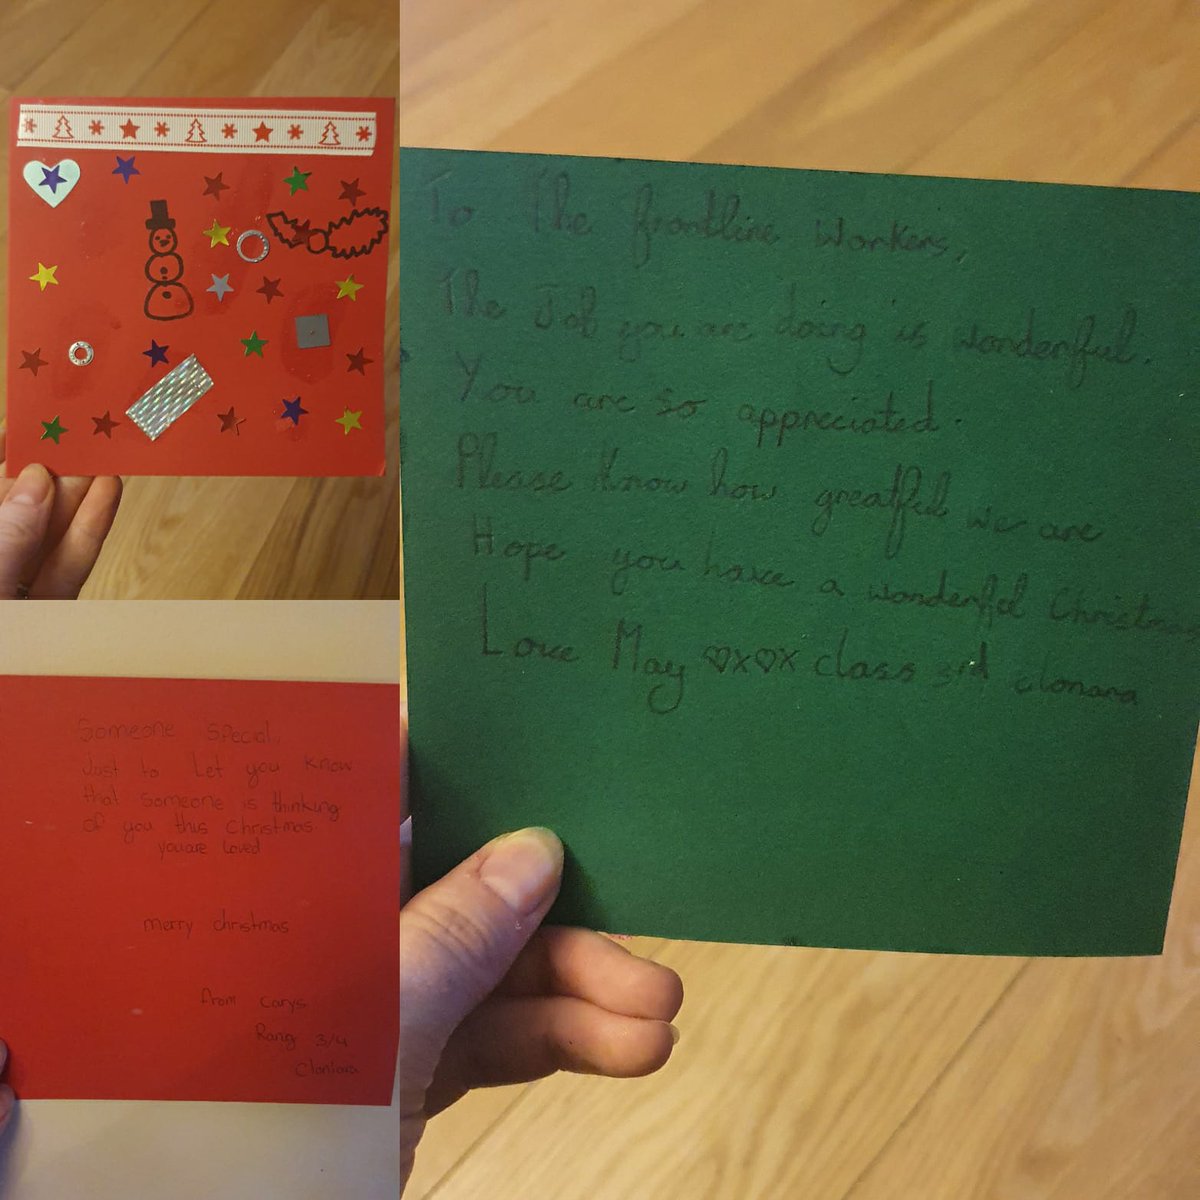 Someone special,
Just to Let you know
that someone is thinking
of you this christmas.
you are loved
merry christmas
from Carys
Rang 3/4
Clonlara
To The frontline workers,
The Job you are doing is wonderful.
You are so appreciated.
Please know how greatful we are
Hope you have a wonderful Christmas
Love May ♡x♡x class 3rd clonara